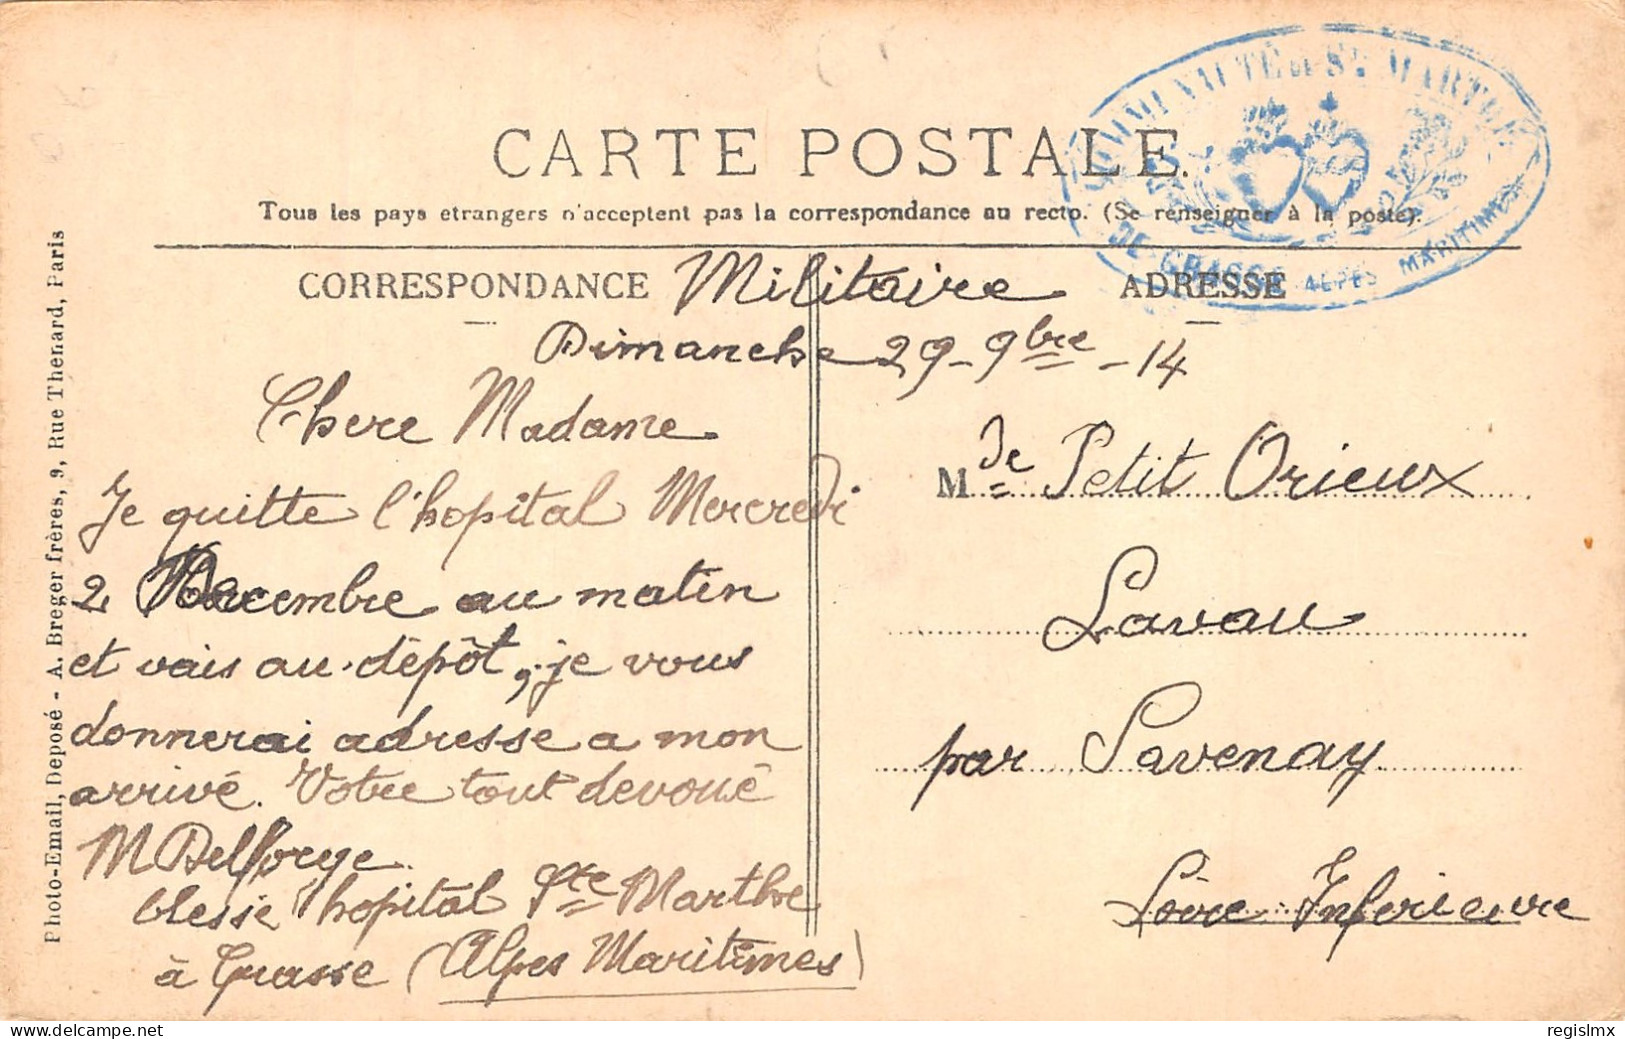 COMMUNAUTÉ DE Ste MARTHE
DE GRASSE ALPES MARITIMES
CARTE POSTALE.
Tous les pays etrangers n'acceptent pas la correspondance au recto. (Se renseigner à la poste).
CORRESPONDANCE Militaire
ADRESSE
Dimanche 29-9bre-14
Chere Madame
Je quitte l'hopital Mercredi
2 Decembre au matin
et vais au dépôt, je vous
donnerai adresse a mon
arrivé. Votre tout devoué
M Delforge
blessé hopital Ste Marthe
à Grasse (Alpes Maritimes)
Mde Petit Orieux
Lavau
par Savenay
Loire Inferieure
Photo-Email, Deposé - A. Breger frères, 9, Rue Thenard, Paris
www.delcampe.net
regislmx